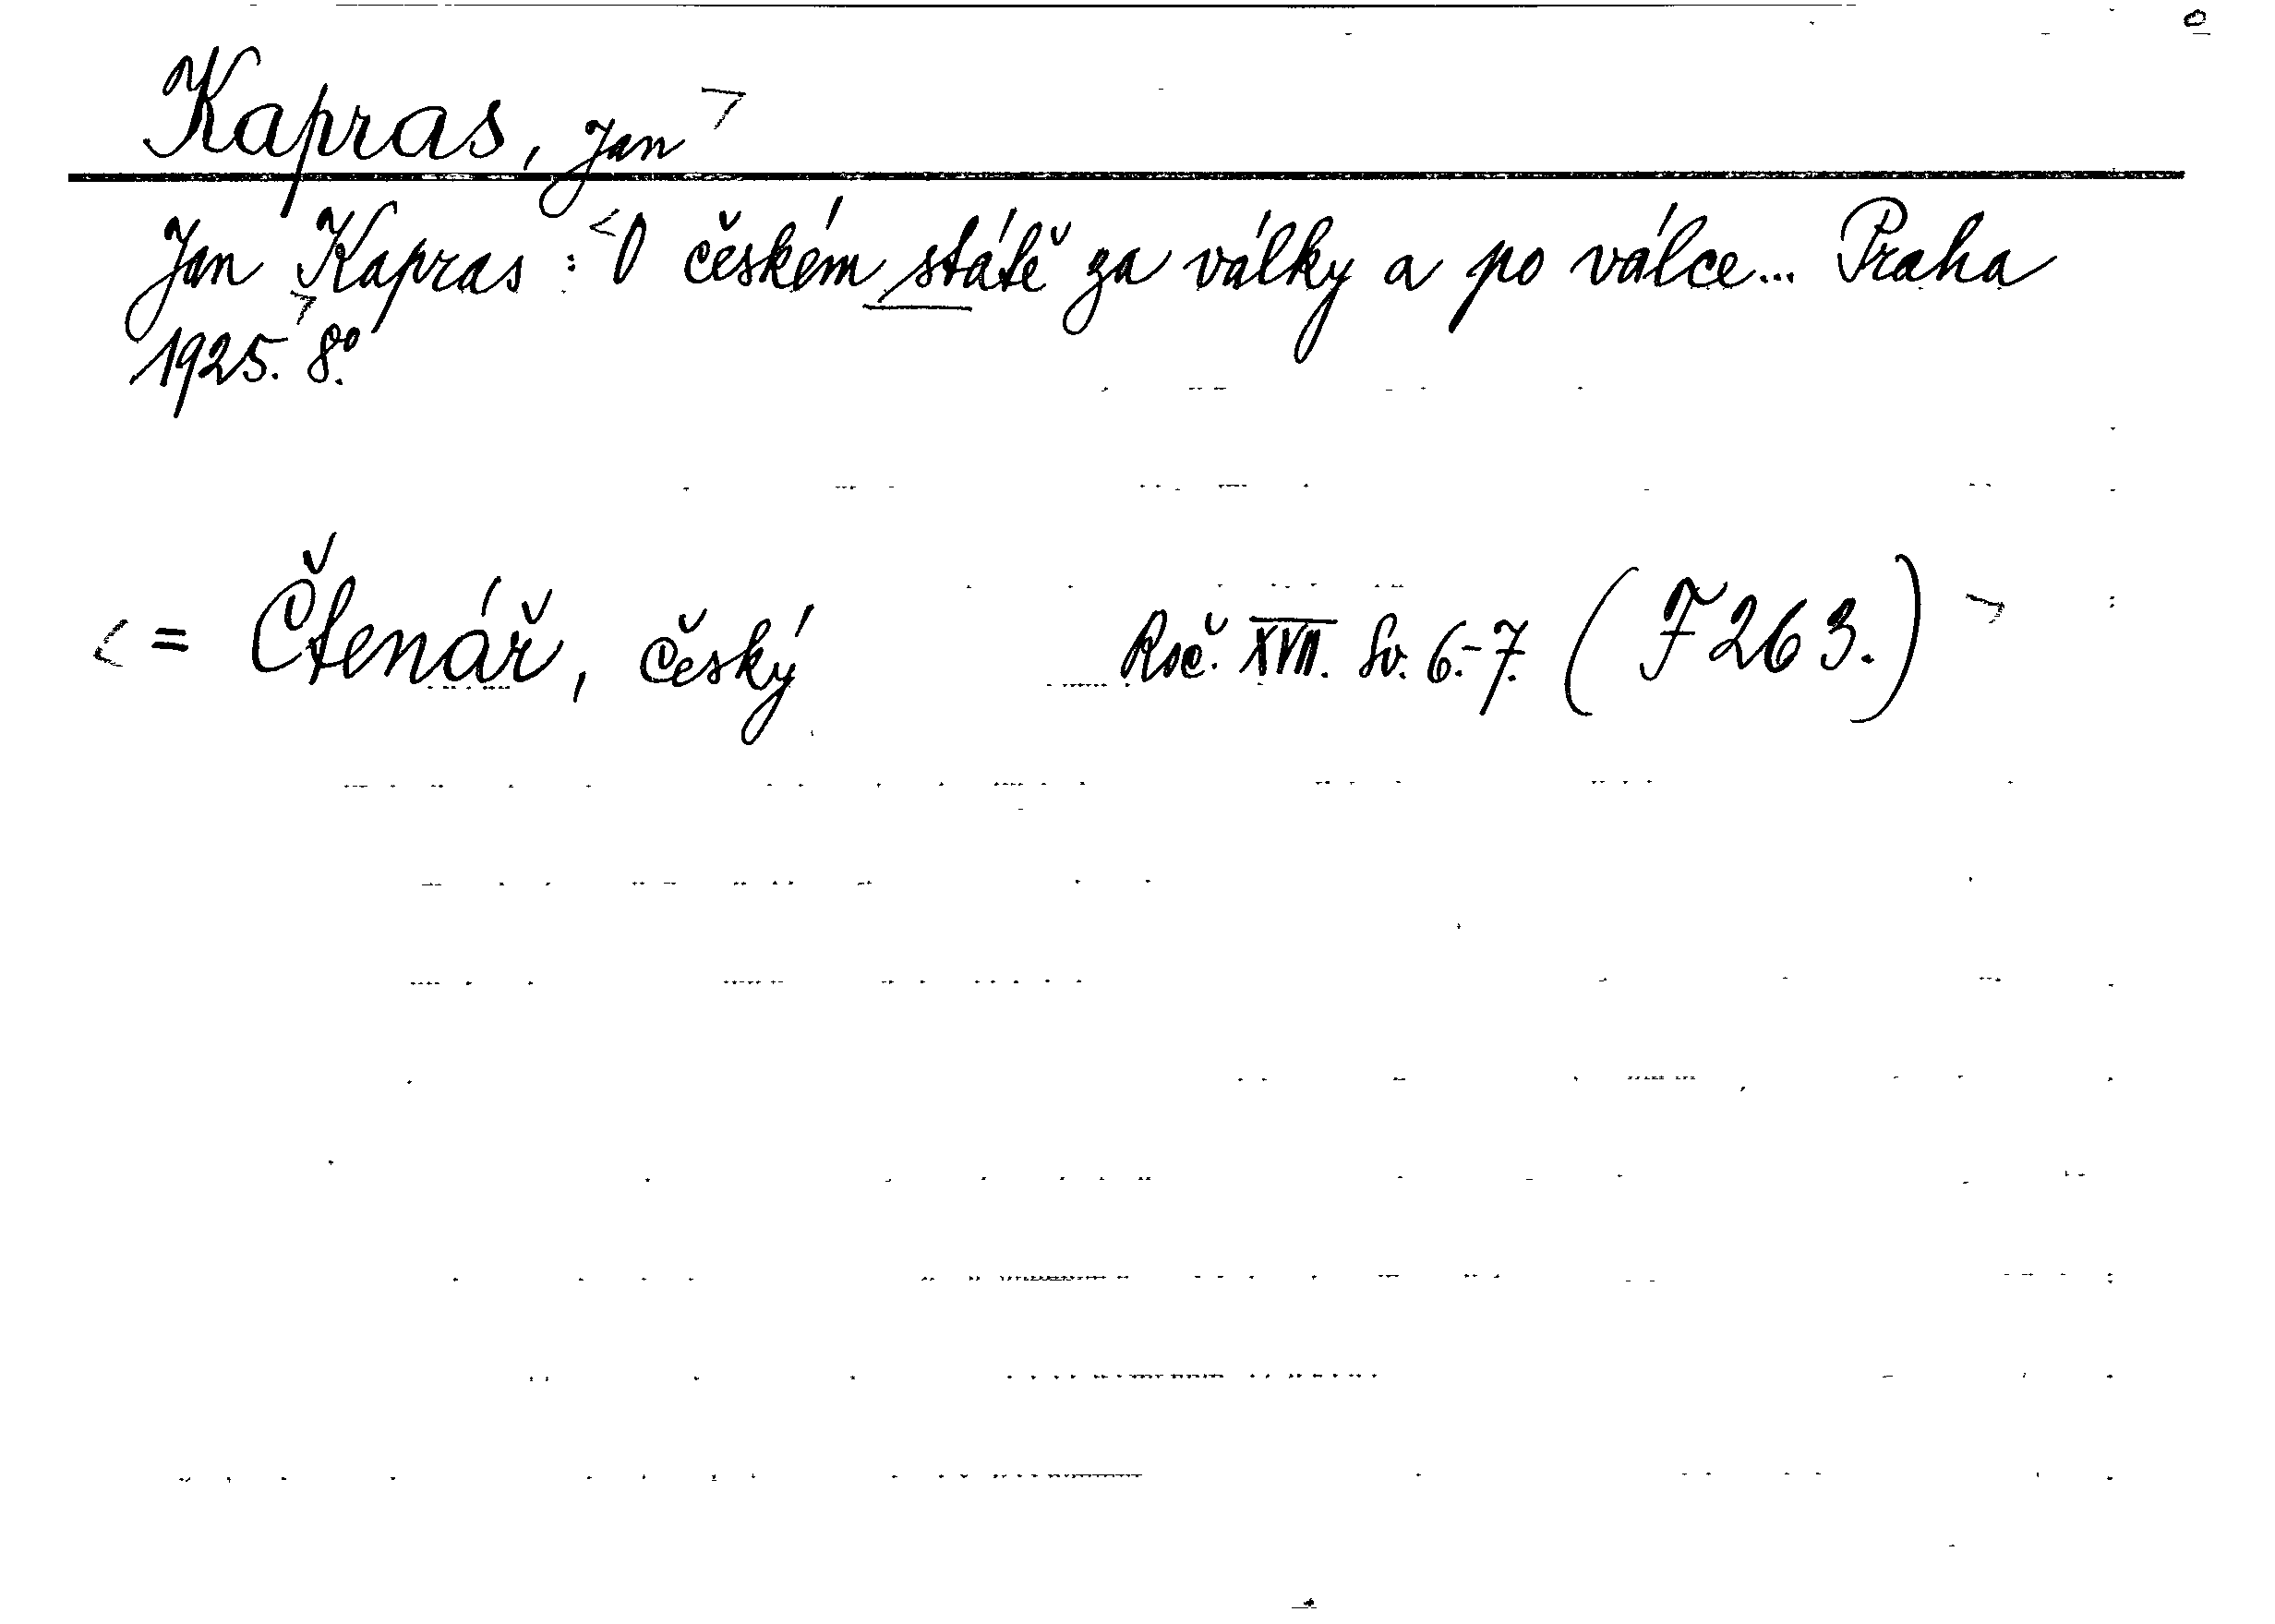 Kapras, Jan
Jan Kapras : O českém státě za války a po válce... Praha
1925. 8°.
= Čtenář, český Roč. XVII. Sv. 6.-7. (F 263.)